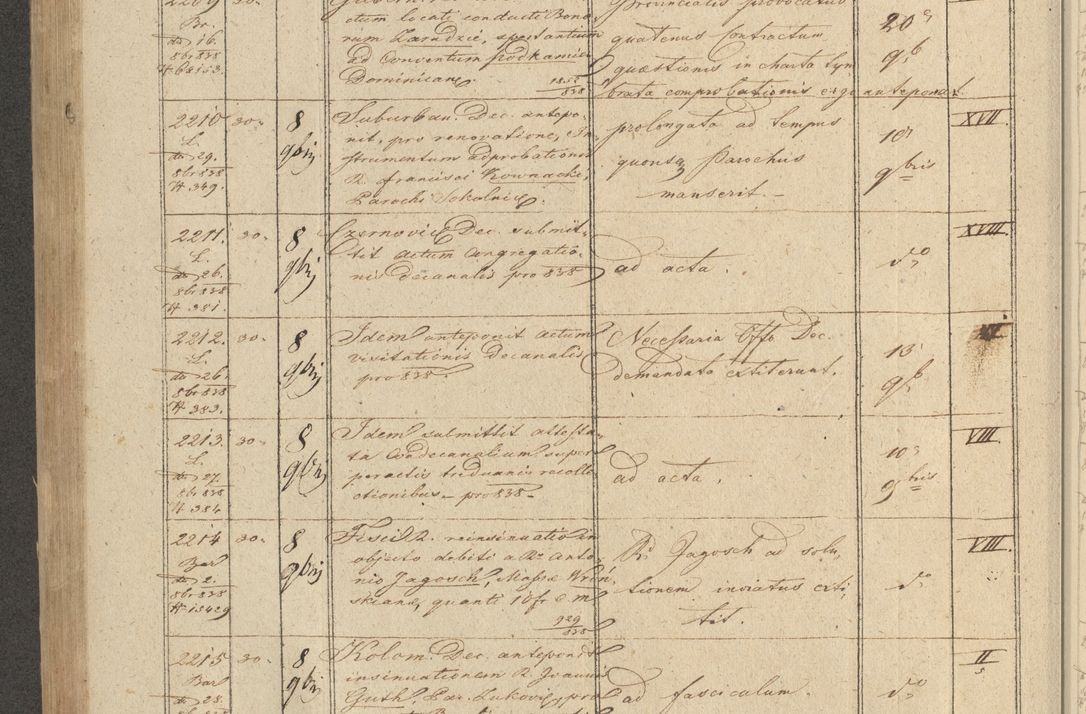 Br.
dto 16.
8br 838
# 68163.
ctum locati conducti Bono-
rum Zarudzie, spectantium
ad Conventum Podkamie
Dominicanæ
838
Provincialis provocatus
quatenus contractum
quæstionis in charta tym
brata comprobationis ergo anteponat
20
9b
2210
L.
dto 29.
8br 838
# 349.
30.
8
9brij
Suburban. Dec. antepo-
nit, pro renovatione, In-
strumentum adprobationis
R. Francisci Kownacki,
Parochi Sokolnicæ.
prolongata ad tempus
quousq Parochus
manserit -
10
9bris
XVII.
2211.
L.
dto 26.
8br 838
# 381.
30.
8
9brij
Czernovic Dec. submit-
tit actum congregatio-
nis decanalis pro 838
ad acta.
dto
XVIII.
2212.
L.
dto 26.
8br 838
# 383.
30.
8
9brij
Idem anteponit actum
visitationis decanalis
pro 838.
Necessaria Offo Dec.
demandata extiterunt.
13
9b
VI.
2213.
L.
dto 27.
8br 838
# 384
30.
8
9brij
Idem submittit attesta-
ta Condecanalium super
peractis triduanis recolle-
ctionibus - pro 838 -
ad acta.
10
9bris
VIII.
2214
Bar
dto 2.
8br 838
# 15429
30.
8
9brij
Fisci R. reinsinuatio in
objecto debiti a Ro Anto-
nio Jagosch, Massæ Wroń-
skianæ, quanti 10 fr c. m
929
838
Rs Jagosch ad solu-
tionem inviatus exti-
tit.
do
VIII.
2215
Bar
dto 28.
30.
8
9brij
Kolom. Dec. anteponit
insinuationem R. Joannis
Guth, Par. Zukoviæ, pro
ad fasciculum.
do
II